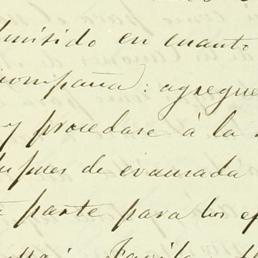 dmitido en cuanto
compaña: agregue
y procedase à la
despues de evacuada
parte para los ef